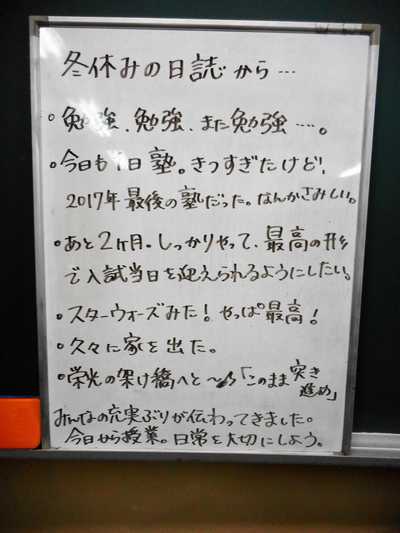 冬休みの日誌から…
。勉強、勉強、また勉強…。
。今日も1日塾。きつすぎたけど、
2017年最後の塾だった。なんかさみしい。
。あと2ヶ月。しっかりやって、最高の形
で入試当日を迎えられるようにしたい。
。スターウォーズみた!やっぱ最高!
。久々に家を出た。
。栄光の架け橋へと〜♪「このまま突き
進め」
みんなの充実ぶりが伝わってきました。
今日から授業。日常を大切にしよう。